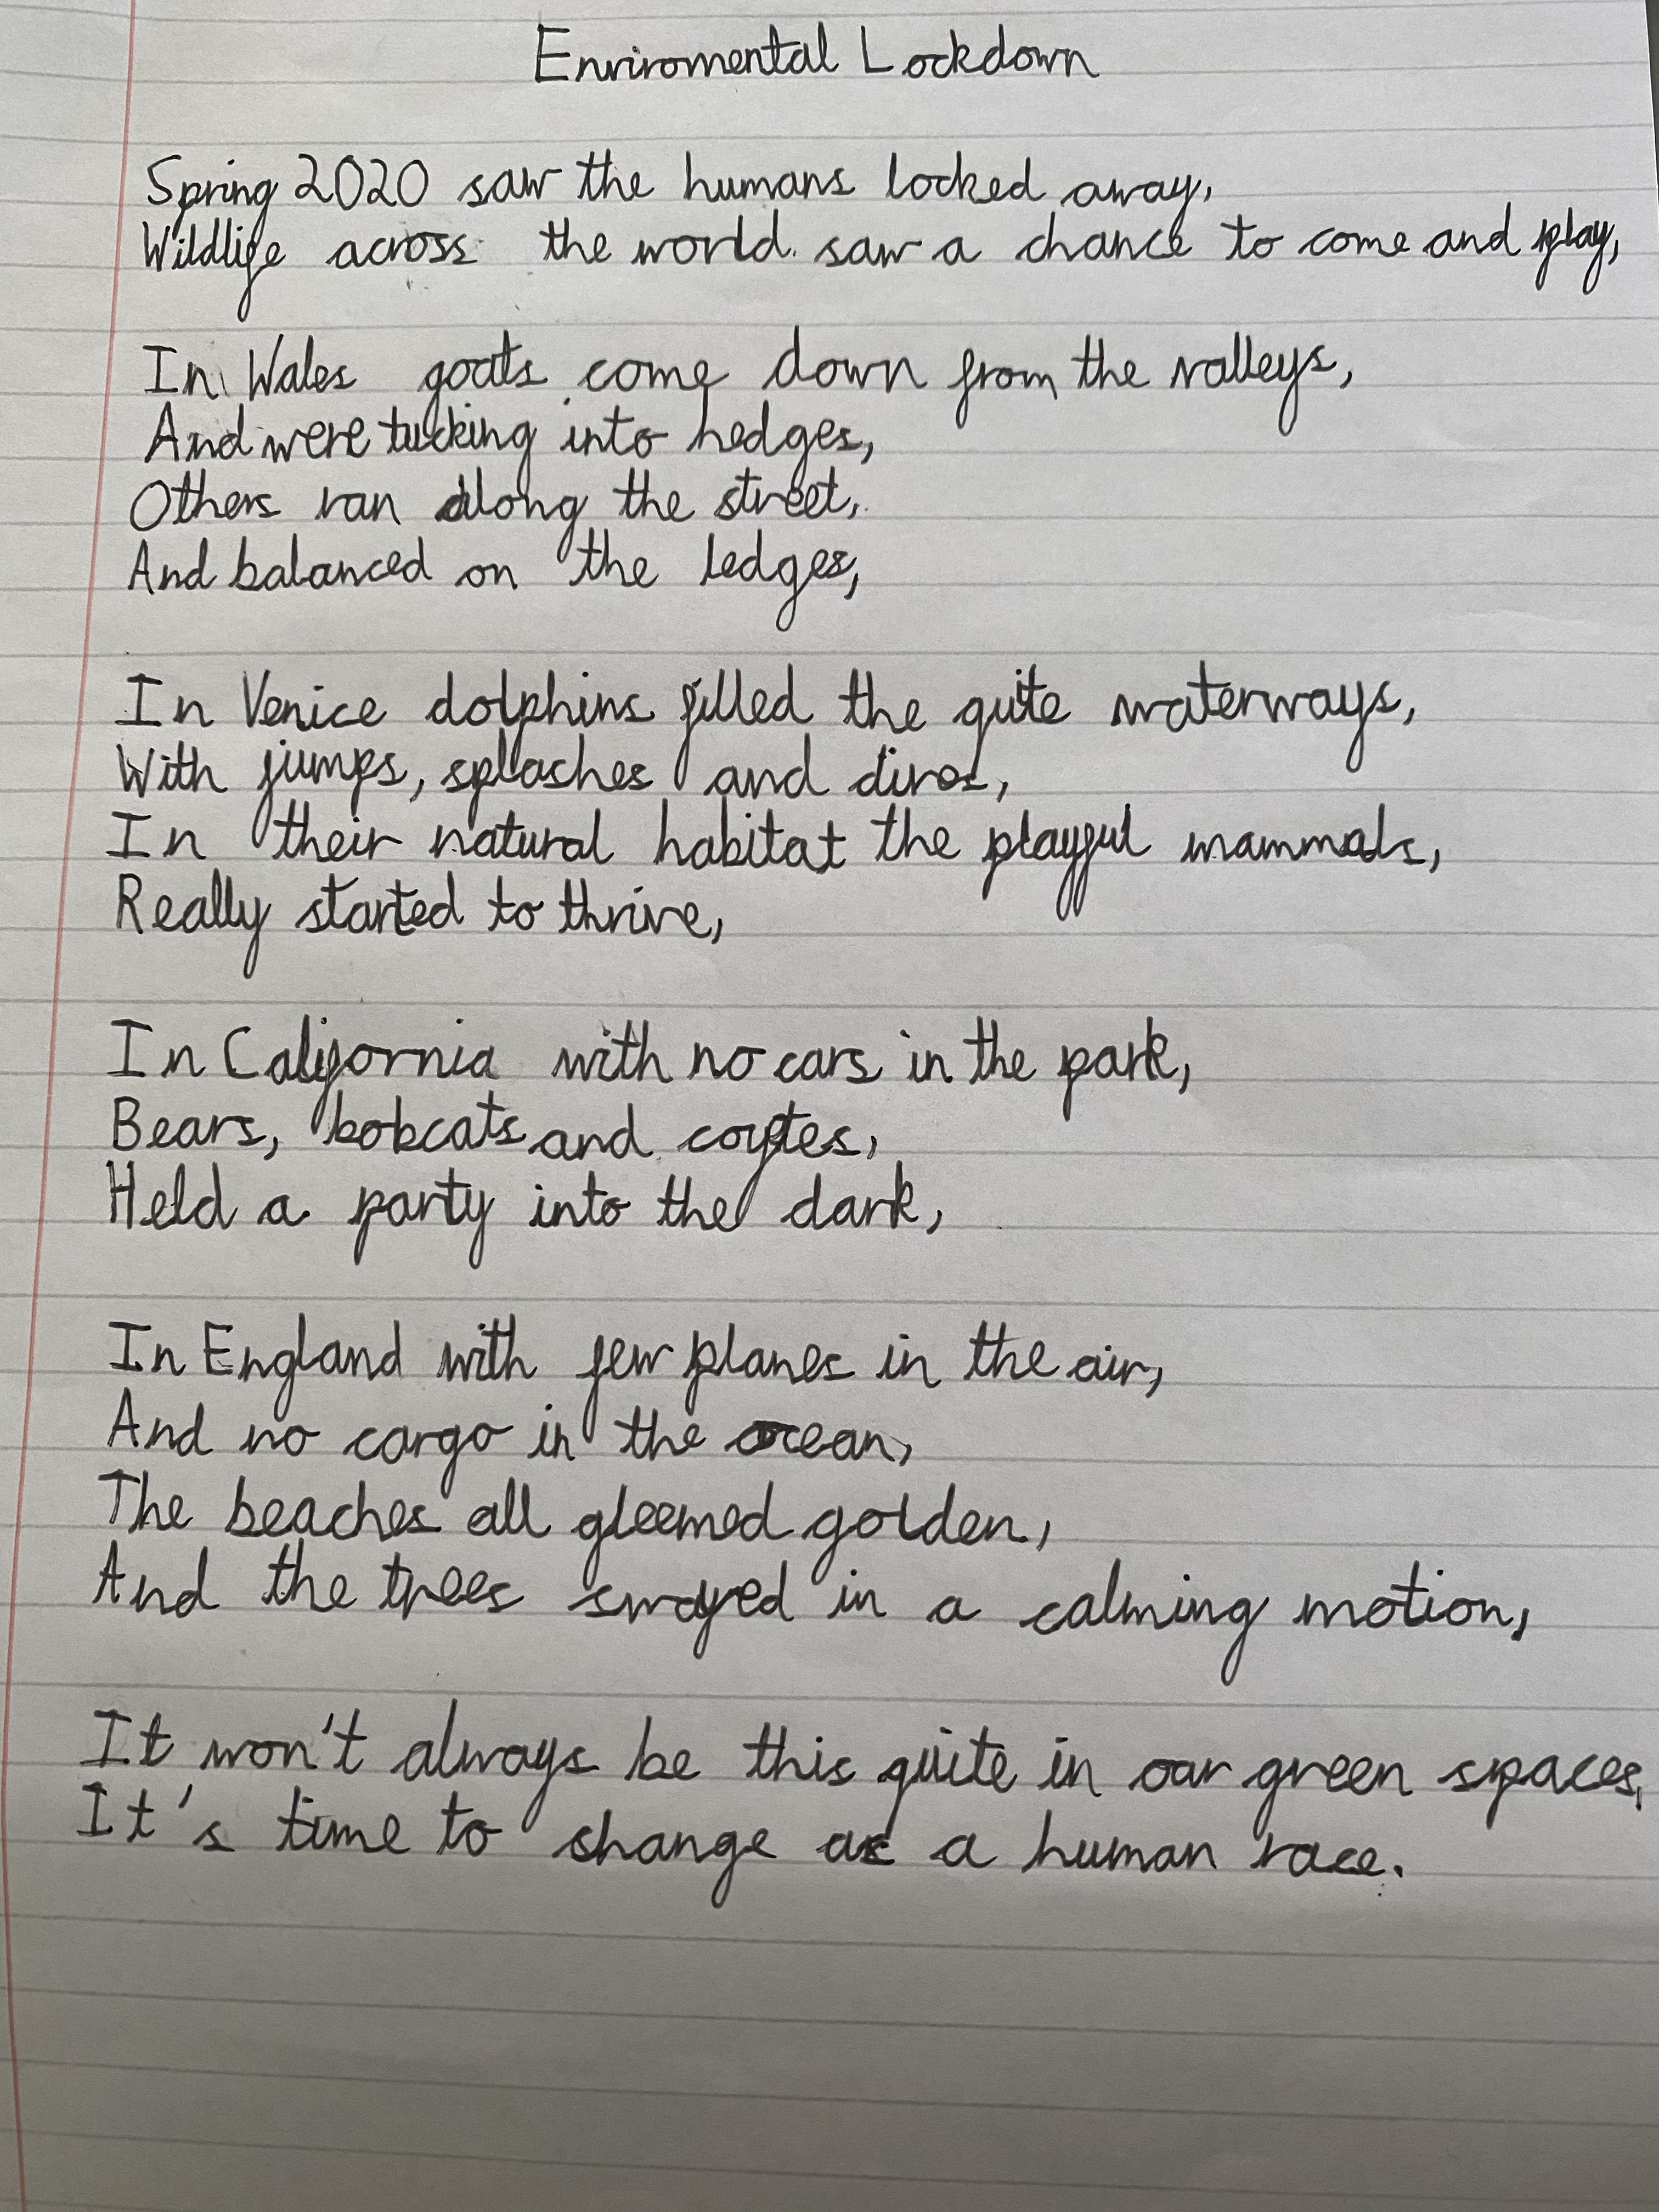 Enviromental Lockdown
Spring 2020 saw the humans locked away,
Wildlife across the world saw a chance to come and play,
In Wales goats come down from the valleys,
And were tucking into hedges,
Others ran along the street,
And balanced on the ledges,
In Venice dolphins filled the quite waterways,
With jumps, splashes and dives,
In their natural habitat the playful mammals,
Really started to thrive,
In California with no cars in the park,
Bears, bobcats and coytes,
Held a party into the dark,
In England with few planes in the air,
And no cargo in the ocean,
The beaches all gleemed golden,
And the trees swayed in a calming motion,
It won't always be this quite in our green spaces,
It's time to shange as a human race.